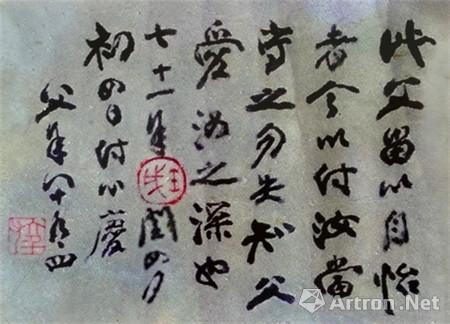 此父留以自怡
者今以付汝當
守之勿失知父
愛汝之深也
七十一年閏四月
初四日付心慶
父年八十有四
壬戌
Artron.Net